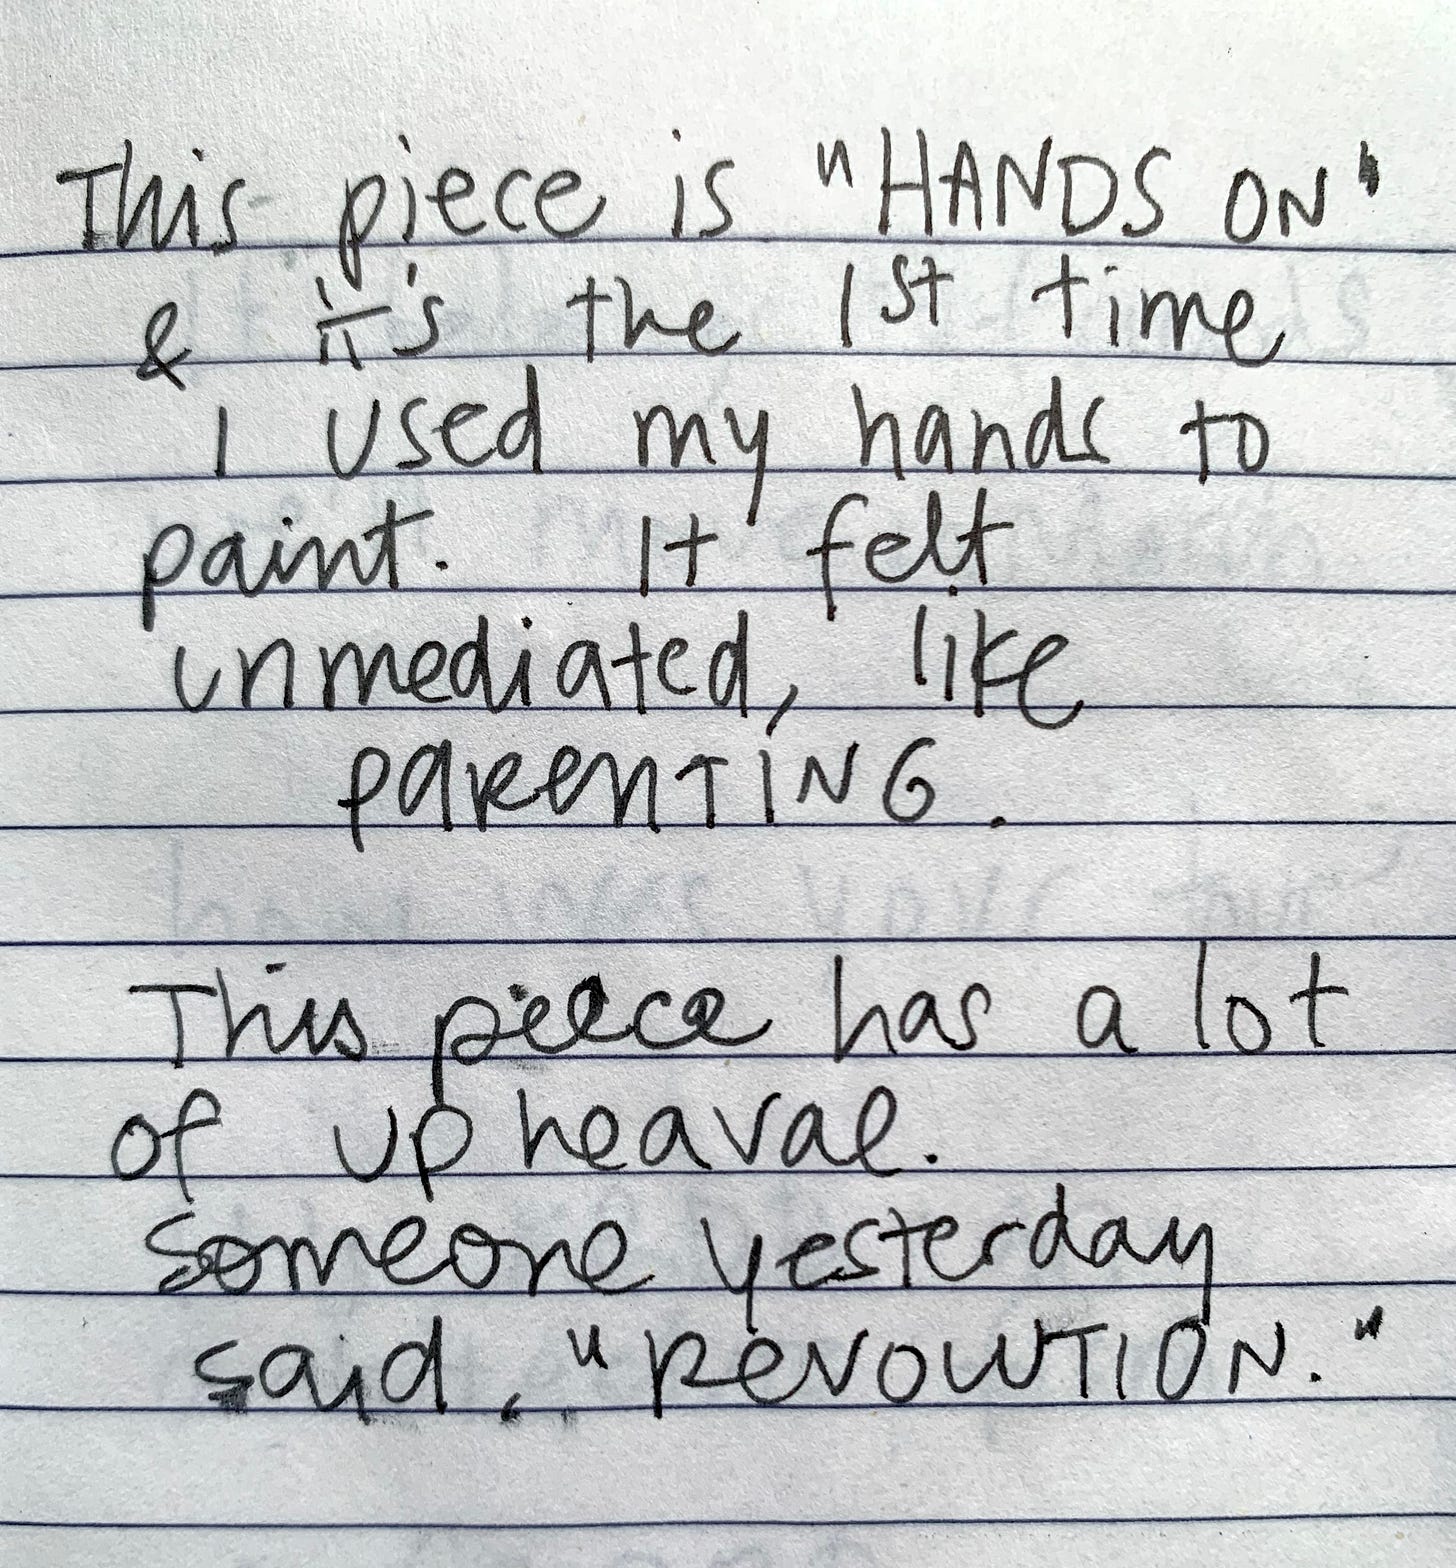 This piece is "HANDS ON"
& it's the 1st time
I used my hands to
paint. It felt
unmediated, like
PARENTING.
This piece has a lot
of upheaval.
Someone yesterday
said, "REVOLUTION."